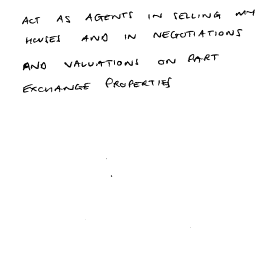 ACT AS AGENTS IN SELLING MY
HOUSES AND IN NEGOTIATIONS
AND VALUATIONS ON PART
EXCHANGE PROPERTIES